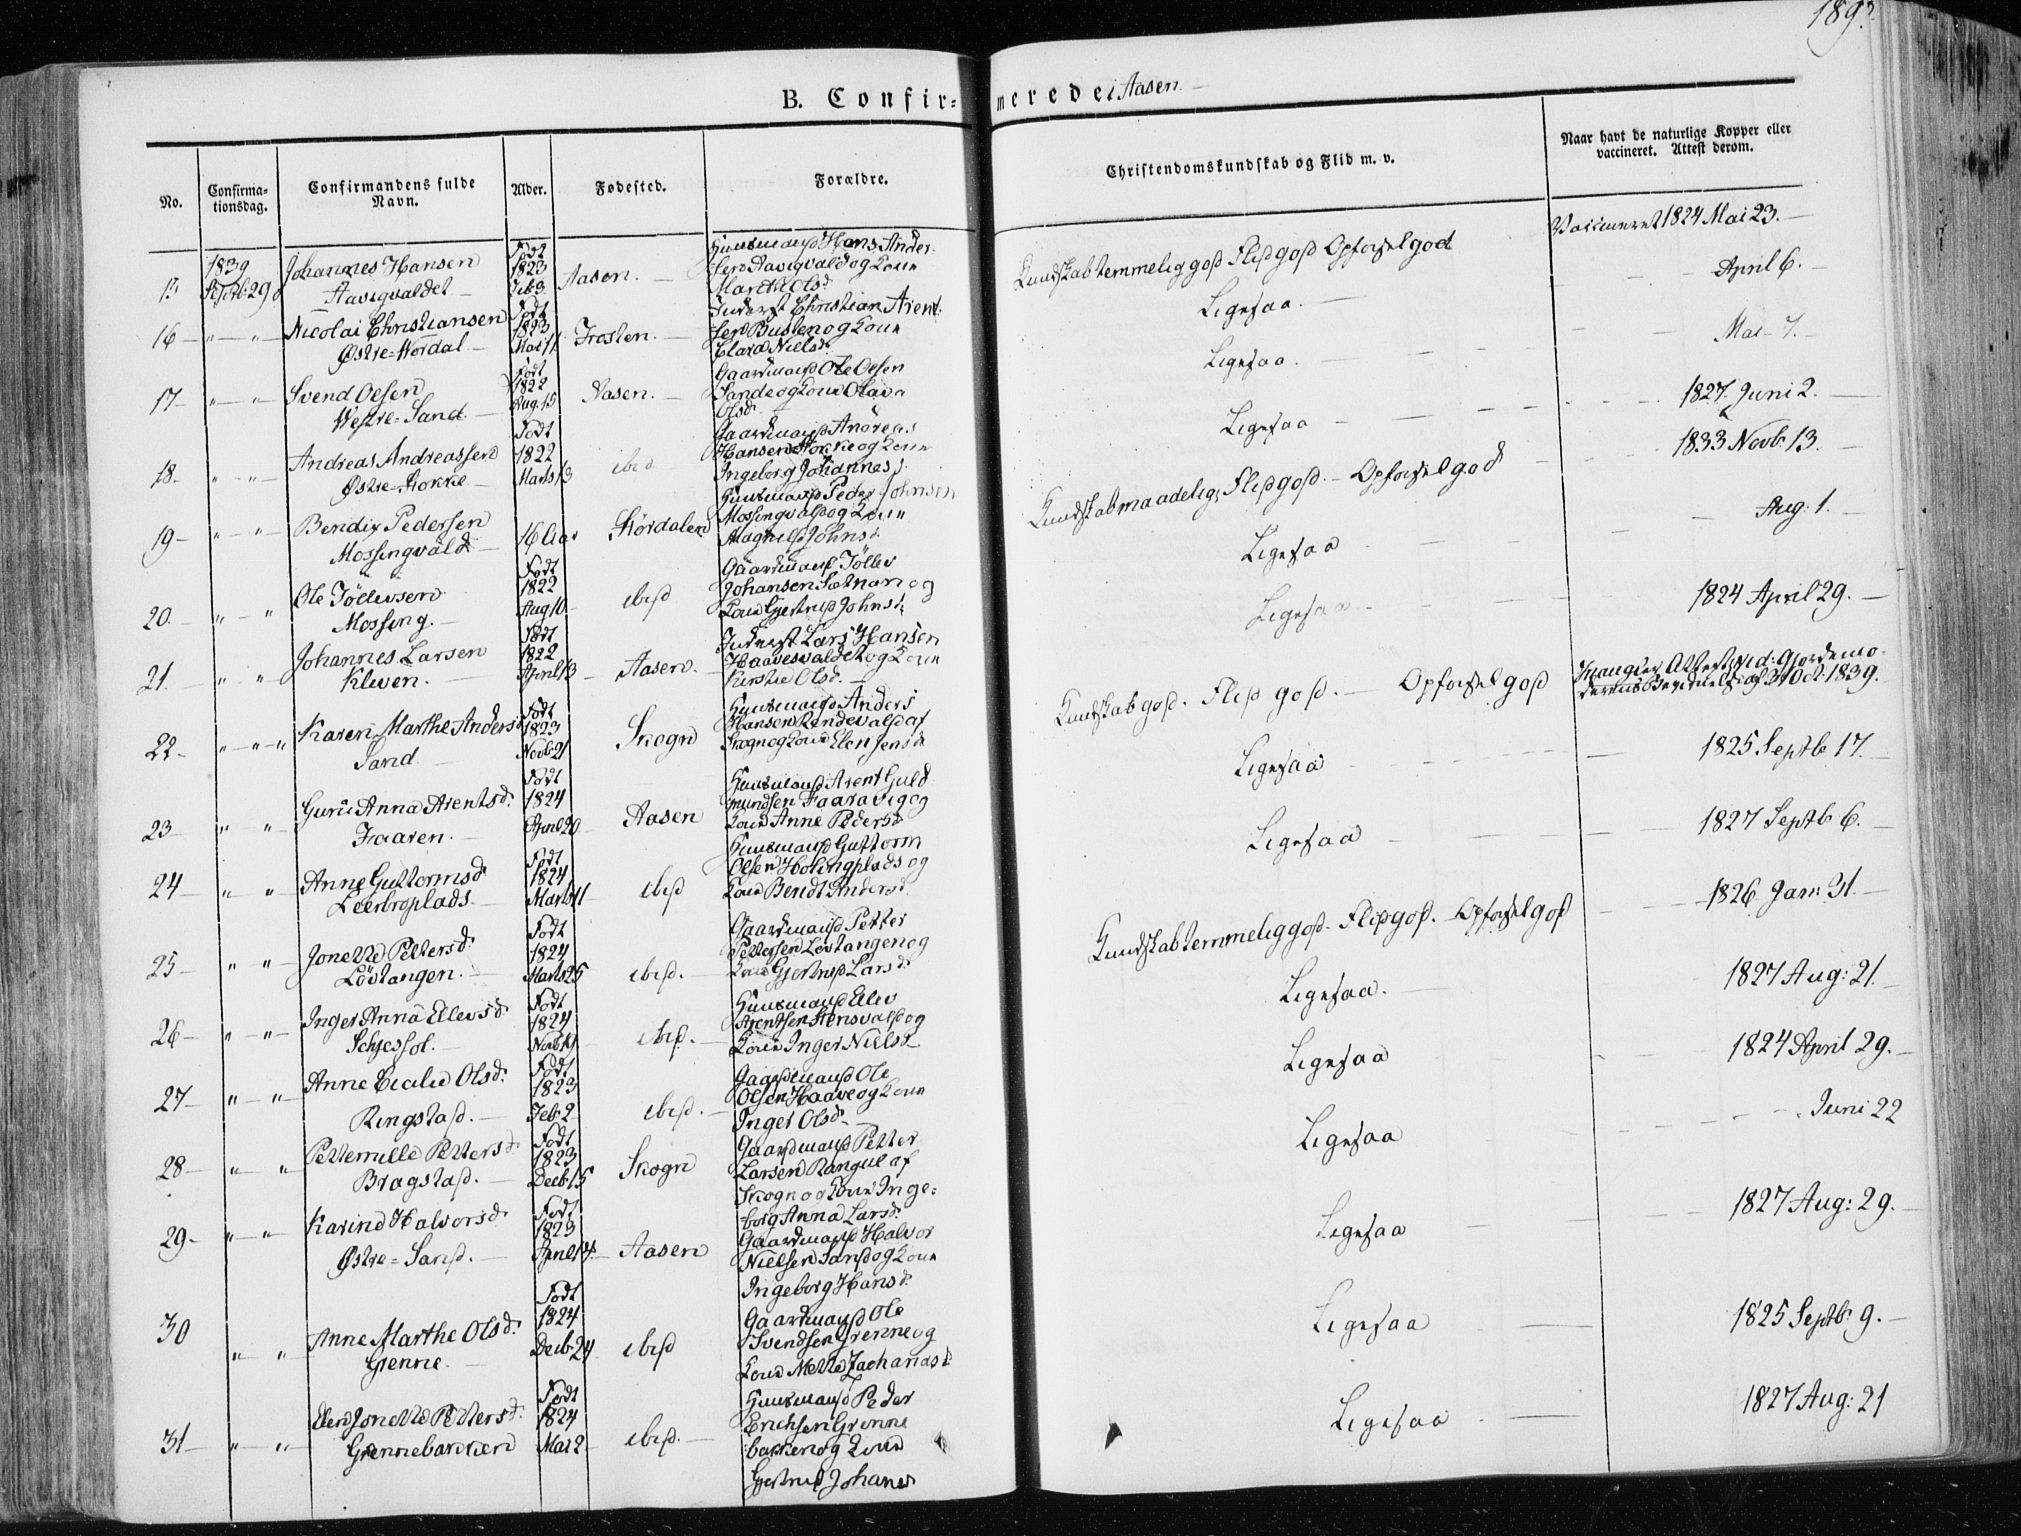 189
B. Confirmerede i Aasen.
No.
Confirmationsdag.
Confirmandens fulde Navn.
Alder.
Fødested.
Forældre.
Christendomskundskab og Flid m. v.
Naar havt de naturlige Kopper eller vaccineret. Attest derom.
1839 Septb: 29
Johannes Hansen
Aavigvaldet
Født 1823 Feb: 3
Aasen.
Huusmand Hans Andersen Aavigvald og Kone
Marethe Olsd.
Kundskab temmelig god Flid god Opførsel god
Vaccineret 1824 Mai 23.
16 " "
Nicolai Christiansen
Østre-Hordal
Født 1823 Mai 11
Frosten.
Inderst Christian Arentsen Buslen og Kone
Clara Nielsd.
Ligesaa.
April 6.
17 " "
Svend Olsen
Vestre-Sand
Født 1822 Aug. 15
Aasen.
Gaardmand Ole Olsen
Sande og Kone Olava
Olsd.
Ligesaa.
Mai 7.
18 " "
Andreas Andreassen
Østre-Hokke
Født 1822 Marts 13
ibid
Gaardmand Andreas
Hansen Hokke og Kone
Ingeborg Johannesd.
Ligesaa
1827 Juni 2.
19 " "
Bendix Pedersen
Mossingvald
16 Aar
Størdalen
Huusmand Peder Johnsen
Mossingvald og Kone
Magnild Johnsd.
Kundskab maadelig, Flid god. Opførsel god
1833 Novb: 13.
20. " "
Ole Tøllevsen
Mossing.
Født 1822 Aug 10
ibid
Gaardmand Tøllev
Johansen Sætnan og
Kone Gjertrud Johnsd.
Ligesaa
Aug: 1.
21. " "
Johannes Larsen
Kleven.
Født 1822 April 13
Aasen.
Inderst Lars Hansen
Haavesvaldet og Kone
Kirstie Olsd.
Ligesaa
1824 April 29.
22 " "
Karen Marthe Andersd
Sand
Født 1823 Novb: 21
Skogn
Huusmand Anders
Hansen Rindevald af
Skogn og Kone Elen Jensd.
Kundskab god. Flid god. Opførsel god
Mangler Attest, vid: Gjordemoderens Bevidnelse af 31 Oct: 1839.
23 " "
Guru Anna Arentsd.
Faaren.
Født 1824 April 20
Aasen
Huusmand Arent Guldmundsen Faaravig og
Kone Anne Pedersd
Ligesaa
1825 Septb 17.
24 " "
Anne Guttormsd.
Leerbroplads
Født 1824 Marts 11
ibid
Huusmand Guttorm
Olsen Holingplads og
Kone Bendt Andersd.
Ligesaa
1827 Septb 6.
25 " "
Jonetta Pettersd.
Løvtangen.
Født 1824 Marts 25
ibid.
Gaardmand Petter
Pettersen Løvtangen og
Kone Gjertrud Larsd.
Kundskab temmelig god. Flid god. Opførsel god
1826 Jan: 31.
26 " "
Inger Anna Ellevsd.
Schjessol.
Født 1824 Novb 19
ibid.
Huusmand Ellev
Arentsen Stensvald og
Kone Inger Nielsd.
Ligesaa.
1827 Aug: 21.
27 " "
Anne Cicilie Olsd.
Ringstad.
Født 1823 Feb: 2
ibid.
Gaardmand Ole
Olsen Haave og Kone
Inger Olsd.
Ligesaa
1824 April 29.
28 " "
Petternille Pettersd.
Bragstad.
Født 1823 Decb 15
Skogn
Gaardmand Petter
Larsen Rangul af
Skogn og Kone Ingeborg Anna Larsd.
Ligesaa
Juni 22
29. " "
Karine Halvorsd.
Østre-Sand.
Født 1823 April 14.
Aasen
Gaardmand Halvor
Nielsen Sand og Kone
Ingeborg Hansd.
Ligesaa
1827 Aug: 29.
30 " "
Anne Marthe Olsd.
Grenne.
Født 1824 Decb: 24
ibid
Gaardmand Ole
Svendsen Grenne og
Kone Mette Zachariasd.
Ligesaa
1825 Septb: 9.
31 " "
Elen Jonetta Pettersd.
Grennebakken
Født 1824 Mai 2
ibid.
Huusmand Peder
Erichsen Grenne
bakken og Kone
Gjertrud Johanesd
Ligesaa
1827 Aug: 21